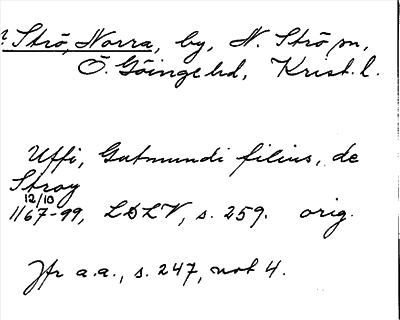 Strö, Norra, by, N. Strö sn,
Ö. Göinge hd, Krist. l.
Uffi, Gutmundi filius, de
Stroy
12/10
1167-99, LDLV, s. 259. orig.
Jfr a.a., s. 247, not 4.